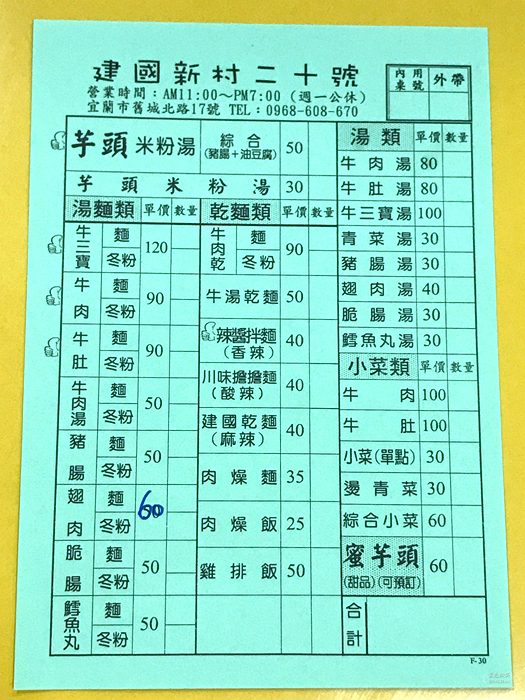 建國新村二十號
營業時間：AM11:00～PM7:00（週一公休）
宜蘭市舊城北路17號 TEL：0968-608-670
內用桌號 外帶
芋頭米粉湯 綜合(豬腸+油豆腐) 50
芋頭米粉湯 30
湯麵類 單價 數量
牛三寶 麵 冬粉 120
牛肉 麵 冬粉 90
牛肚 麵 冬粉 90
牛肉湯 麵 冬粉 50
豬腸 麵 冬粉 50
翅肉 麵 冬粉 60
脆腸 麵 冬粉 50
鱈魚丸 麵 冬粉 50
乾麵類 單價 數量
牛肉乾 麵 冬粉 90
牛湯乾麵 50
辣醬拌麵(香辣) 40
川味擔擔麵(酸辣) 40
建國乾麵(麻辣) 40
肉燥麵 35
肉燥飯 25
雞排飯 50
湯類 單價 數量
牛肉湯 80
牛肚湯 80
牛三寶湯 100
青菜湯 30
豬腸湯 30
翅肉湯 40
脆腸湯 30
鱈魚丸湯 30
小菜類 單價 數量
牛肉 100
牛肚 100
小菜(單點) 30
燙青菜 30
綜合小菜 60
蜜芋頭 (甜品)(可預訂) 60
合計
F-30